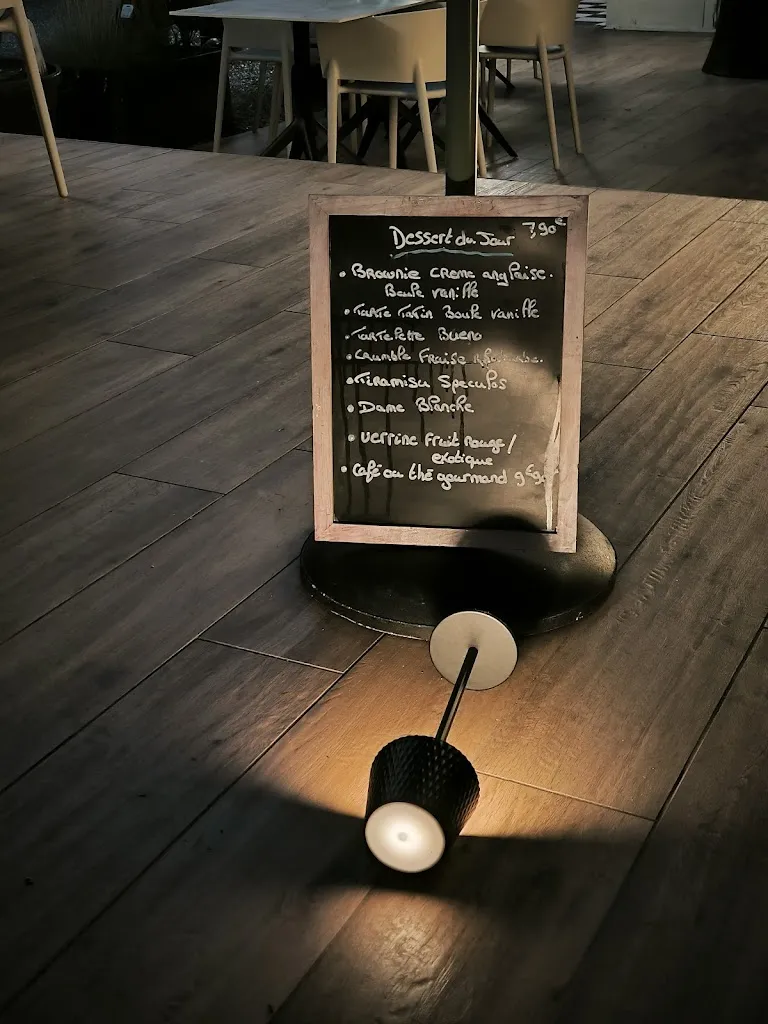 Dessert du Jour 7,90€
• Brownie creme anglaise.
Boule vanille
• Tarte Tatin Boule vanille
• Tartelette Bueno
• Crumble Fraise
• Tiramisu Speculos
• Dame Blanche
• Verrine Fruit Rouge/
exotique
• Café ou thé gourmand